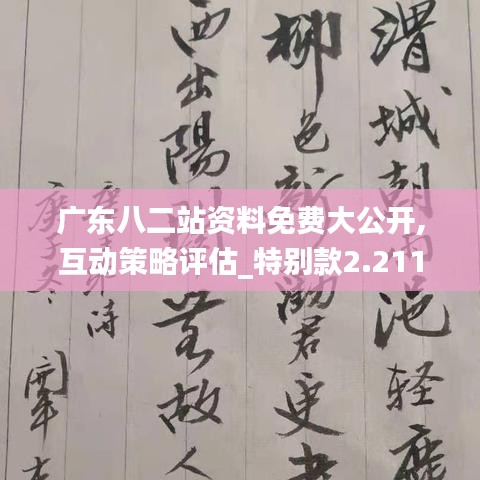 渭城朝雨浥轻塵
柳色新劝君更
西出陽關無故人
诗
庚子冬
广东八二站资料免费大公开,
互动策略评估_特别款2.211